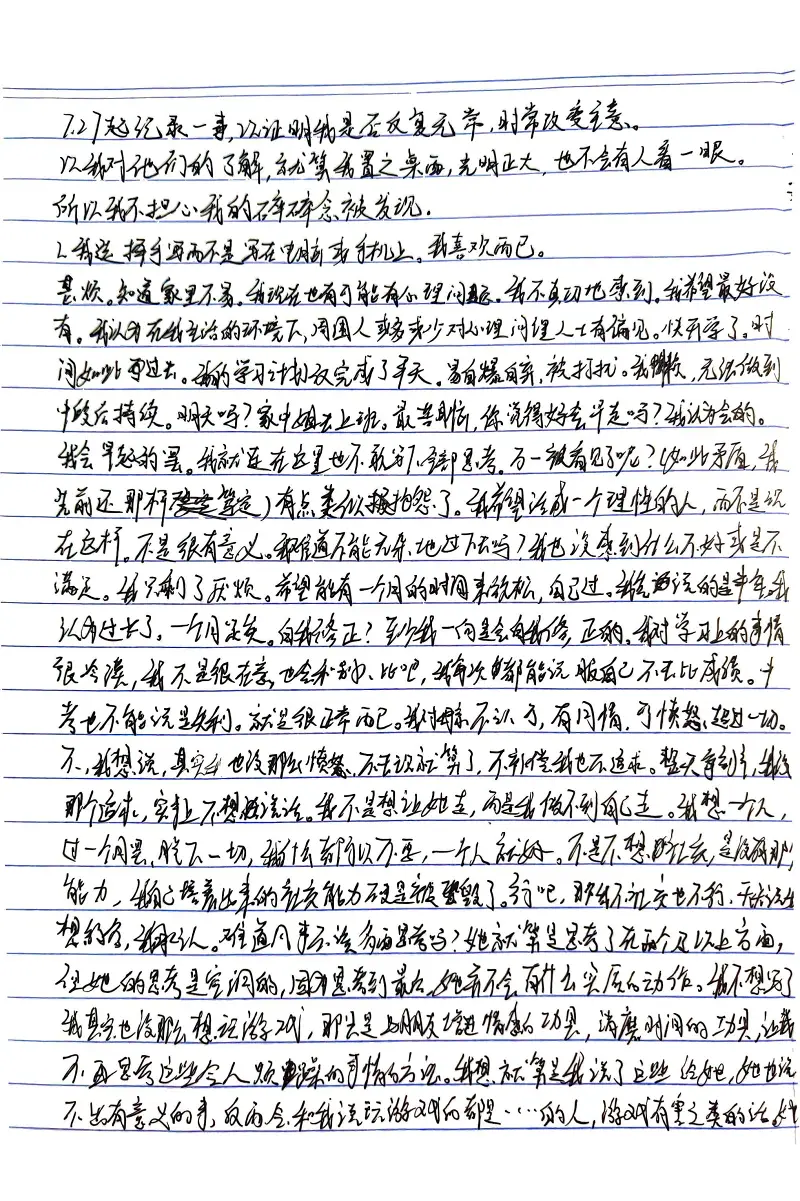 7.27起记录一事,以证明我是否反复无常,时常改变主意。
以我对他们的了解,就算我置之桌面,光明正大,也不会有人看一眼。
所以我不担心我的碎碎念被发现.
2.我选择手写而不是写在电脑或手机上。我喜欢而已。
甚烦。知道家里不易。我现在也有可能有心理问题。我不真切地感到。我希望最好没
有。我认为在我生活的环境下,周围人或多或少对心理问理人士有偏见。快开学了。时
间如此可过去。我的学习计划仅完成了半天。易自爆自弃,被打扰。我烦,无法做到
中段后持续。明天吗?家中姐去上班。最苦恼,你说得好会早起吗?我认为会的。
我会早起的罢。我就连在这里也不敢写下全部思考。万一被看见了呢?(如此矛盾,我
先前还那样笃定)有点类似抱怨了。我希望活成一个理性的人,而不是现
在这样。不是很有意义。我难道不能无杂地过下去吗?我也没感到什么不好或是不
满足。我只剩了厌烦。希望能有一个月的时间来放松,自己过。我先前说的是半年。我
认为过长了,一个月足矣。自我修正?至少我一向是会自我修正的。我对学习上的事情
很冷漠,我不是很在意,也会和别人比吧,我每次都能说服自己不去比成绩。中
考也不能说是失利。就是很正常而已。我对母亲不认可,有同情,可愤怒超过一切。
不,我想说,其实也没那么愤怒,不去说就算了,不判偿我也不追求。整天拿到手,我没
那个追求,实际上不想说话。我不是想让她走,而是我做不到自己走。我想一个人,
过一个月罢,脱下一切,我什么都可以不要,一个人就好。不是不想社交,是没有那
能力,我自己培养出来的社交能力不是被毁了。行吧,那我不社交也不行,
想约会,我承认。难道凡事不该多面思考吗?她就算是思考了在两个及以上方面,
但她的思考是空洞的,因为思考到最后,她亦不会有什么实质的动作。我不想写了
我其实也没那么想玩游戏,那只是与朋友增进情感的工具,消磨时间的工具,让我
不再思考这些令人烦躁的事情的方法。我想就算是我说了这些给她,她也说
不出有意义的事,反而会和我说玩游戏的都是……的人,游戏有害之类的话。她